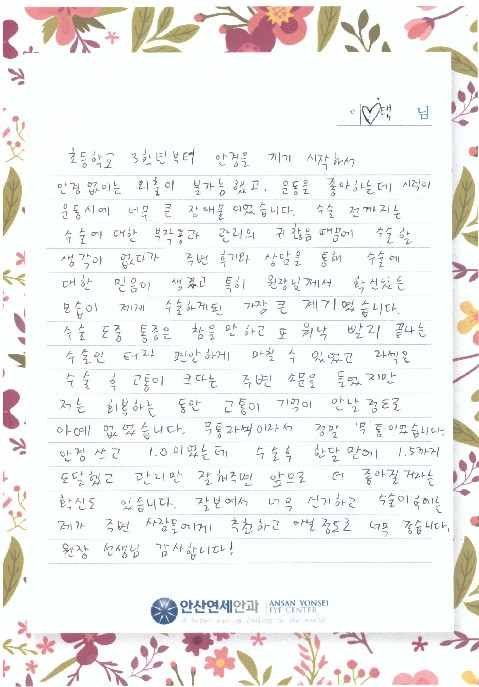 이♡택 님
초등학교 3학년부터 안경을 끼기 시작해서
안경 없이는 외출이 불가능했고, 운동을 좋아하는데 시력이
운동시에 너무 큰 장애물이었습니다. 수술 전까지는
수술에 대한 부작용과 관리의 귀찮음 때문에 수술할
생각이 없다가 주변 후기와 상담을 통해 수술에
대한 믿음이 생겼고 특히 원장님께서 확신있는
모습이 제게 수술하게된 가장 큰 계기였습니다.
수술 도중 통증은 참을만하고 또 워낙 빨리 끝나는
수술인 터라 편안하게 마칠 수 있었고 라섹은
수술 후 고통이 크다는 주변 소문을 들었지만
저는 회복하는 동안 고통이 기억이 안날 정도로
아예 없었습니다. 무통라섹이라서 정말 '무'통이었습니다.
안경 쓰고 1.0이었는데 수술후 한달만에 1.5까지
도달했고 관리만 잘해주면 앞으로 더 좋아질거라는
확신도 있습니다. 잘보여서 너무 신기하고 수술이후에는
제가 주변 사람들에게 추천하고 다닐 정도로 너무 좋습니다.
원장 선생님 감사합니다!
안산연세안과 ANSAN YONSEI
EYE CENTER
A better way of looking at the world